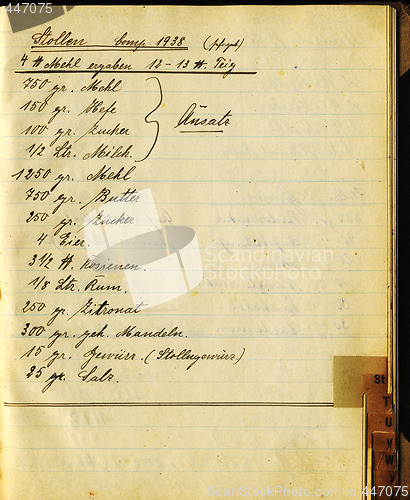 447075
Stollen comp 1938
4 ℔ Mehl ergaben 12 - 13 ℔. Teig
750 gr. Mehl
150 gr. Hefe
100 gr. Zucker
1/2 Ltr. Milch.
Ansatz
1250 gr. Mehl
750 gr. Butter
250 gr. Zucker
4 Eier.
3 1/2 ℔. Rosienen.
1/8 Ltr. Rum.
250 gr. Zitronat
300 gr. geh. Mandeln.
15 gr. Gewürz. (Stollngewürz)
25 gr. Salz.
St
T
U
V
W
SCANDINAVIAN
STOCKPHOTO
447075